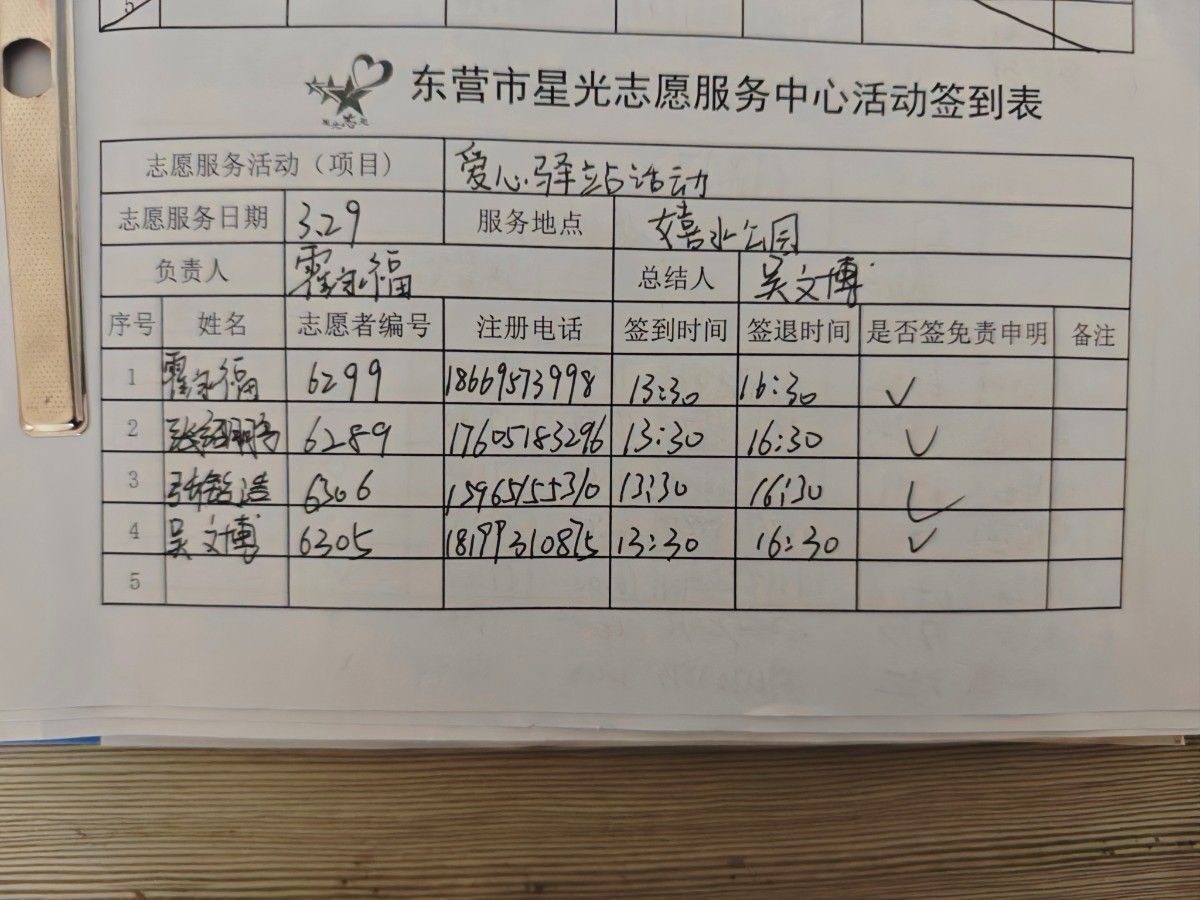 5
东营市星光志愿服务中心活动签到表
志愿服务活动（项目） 爱心驿站活动
志愿服务日期 3.29 服务地点 嬉水公园
负责人 霍永福 总结人 吴文博
序号 姓名 志愿者编号 注册电话 签到时间 签退时间 是否签免责申明 备注
1 霍永福 6299 18669573998 13:30 16:30 ✓
2 6289 17605183296 13:30 16:30 ✓
3 6306 15965155310 13:30 16:30 ✓
4 吴文博 6305 18199310875 13:30 16:30 ✓
5